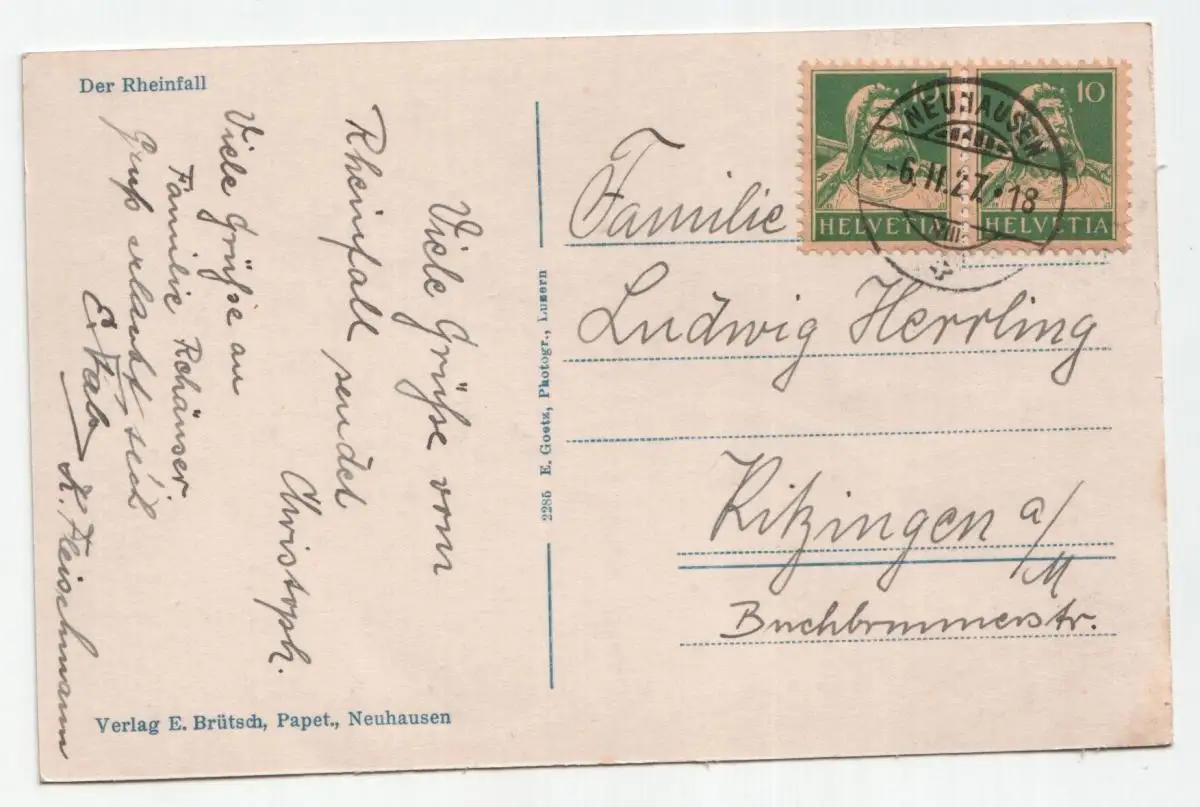 Der Rheinfall
Viele Grüße vom
Rheinfall sendet
Christoph.
Viele Grüße an
Familie
Gruß erlaubt sich
K. Fleischmann
Verlag E. Brütsch, Papet., Neuhausen
2285 E. Goetz, Photogr., Luzern
10
10
HELVETIA
HELVETIA
NEUHAUSEN
-6.II.27.•18
Familie
Ludwig Herrling
Kitzingen a/M
Buchbrunnerstr.